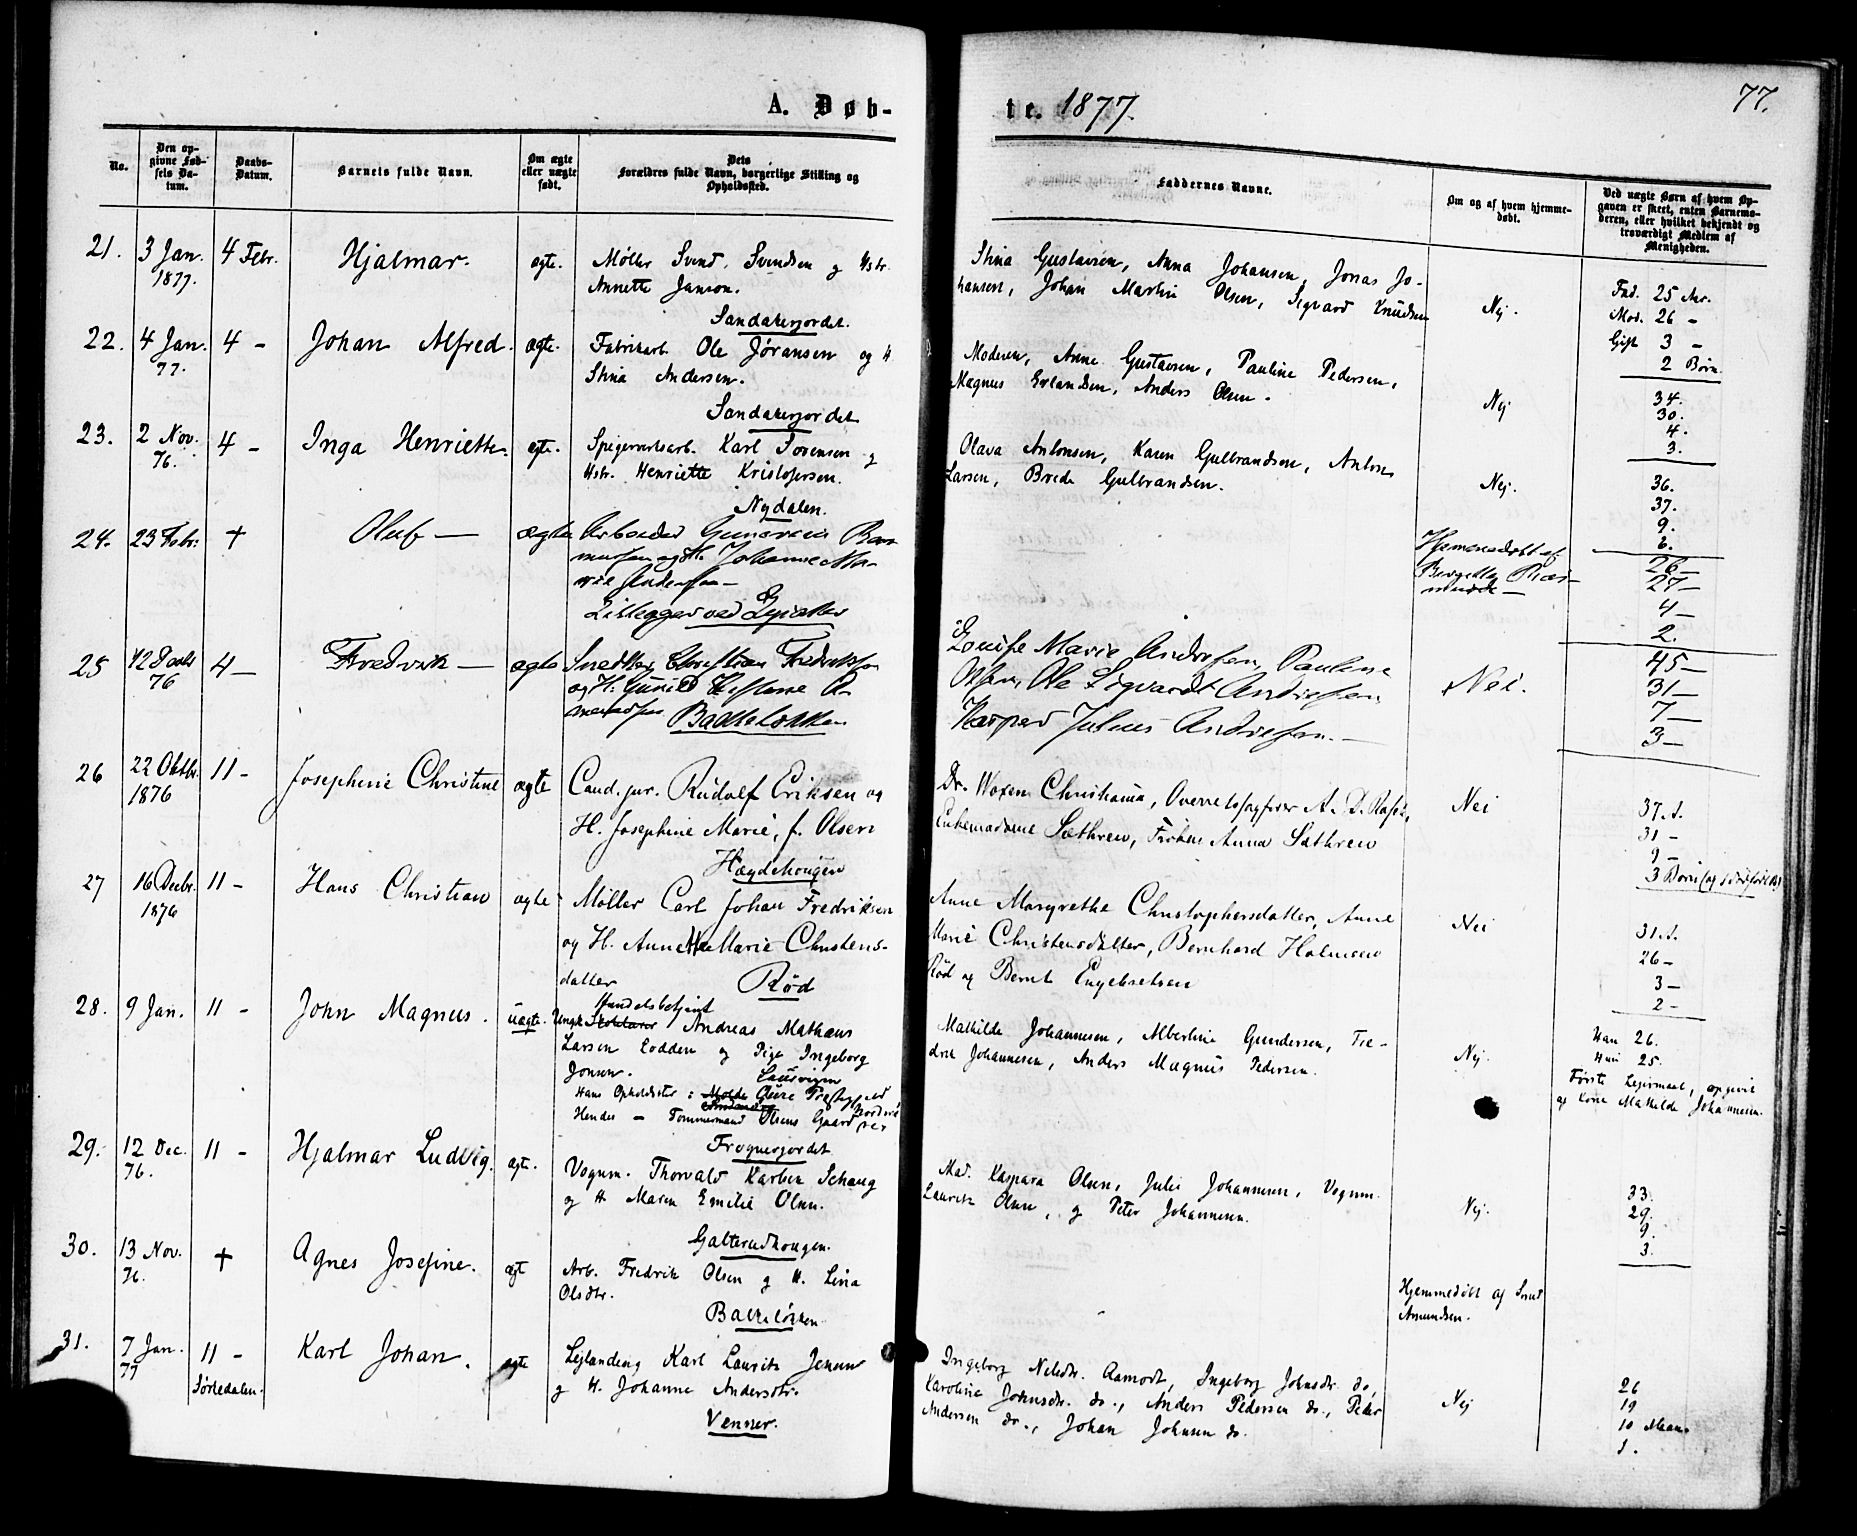 A. Døb-
te. 1877.
77.
No.
Den op-
givne Fød-
sels Da-
tum.
Daabs-
Datum.
Barnets fulde Navn.
Om ægte
eller uægte
født.
Dets
Forældres fulde Navn, borgerlige Stilling og
Opholdssted.
Faddernes Navne.
Om og af hvem hjemme-
døbt.
Ved uægte Børn af hvem Op-
gaven er skeet, enten Barnemo-
deren, eller hvilket bekjendt og
troværdigt Medlem af
Menigheden.
21. 3 Jan. 4 Febr. Hjalmar. ægte. Møller Svend Svendsen og Hstr.
1877. Annette Janson.
Sandakerjordet.
Stina Gustavsen, Anna Johansen, Jonas Jo-
hansen, Johan Martin Olsen, Sigvard Knudsen
Nej.
Fad. 25 Aar.
Mod. 26 -
Gift 3 -
2 Børn.
22. 4 Jan. 4 - Johan Alfred. ægte. Fabrikarb. Ole Jøransen og H.
77. Stina Andersen.
Sandakerjordet
Moderen, Anne Gustavsen, Pauline Pedersen,
Magnus Erlandsen, Anders Olsen.
Nej
34.
30.
4.
3.
23. 2 Nov. 4 - Inga Henriette. ægte. Spigerverksarb. Karl Sørensen og
76. Hstr. Henriette Kristofersen.
Nydalen.
Olava Antonsen, Karen Gulbrandsen, Anton
Larsen, Brede Gulbrandsen.
Nej.
36.
37.
9.
6.
24. 23 Febr. + Oluf — ægte Arbeider
og H. Johanne Ma-
rie
Hjemmedøbt af
26 —
27 —
4 —
2.
25 12 76 4 — Fredrik — ægte Snedker Christian Fredriksen
og H. Gunild
Bakkeløkken
Louise Marie Andresen, Pauline
Olsen, Ole Sigvardt Andresen
Kasper Julius Andresen. —
Nei.
45 —
31 —
7 —
3 —
26 22 Oktbr. 11 - Josephine Christine ægte Cand. jur. Rudolf Eriksen og
1876 H. Josephine Marie, f. Olsen
Dr. Christiania, Overretssagfører A. D.
Enkemadame Sæthren, Frøken Anna Sæthren
Nei
37.
31 -
9 -
3 Børn
27 16 Decbr. 11 - Hans Christian ægte Møller Carl Johan Fredriksen
1876 og H. Annette Marie Christens-
datter Rød
Anne Margrethe Christophersdatter, Anne
Marie Christensdatter, Bernhard Halvorsen
Rød og Bernt Engebretsen
Nei
31.
26 -
3 -
2 -
28. 9 Jan. 11 - John Magnus. uægte. Ungk. Handelsbetjent Andreas Mathæus
Larsen Lodden og Pige Ingeborg
Jonsen. Laurvigen
Hans Opholdssted: Molde
Hendes — Tømmermand Olsens Gaard
Frognerjordet
Mathilde Johannesen, Albertine Gundersen, Fre-
drik Johannesen, Anders Magnus Pedersen.
Nej.
Han 26.
Hun 25.
Første Leiermaal, opgivet
af Kone Mathilde Johannesen.
29. 12 Dec. 11 - Hjalmar Ludvig. ægte. Vognm. Thorvald Karber Schaug
76. og H. Maren Emilie Olsen.
Galterudhougen.
Mad. Kaspara Olsen, Julie Johannesen, Vognm.
Lauritz Olsen, og Peter Johannesen.
Nej.
33.
29.
9.
3.
30. 13 Nov. + Agnes Josefine. ægt Arb. Fredrik Olsen og H. Lina
76. Olsdtr.
Bakkeløkken
Hjemmedøbt af
Amundsen.
31. 7 Jan. 11 - Karl Johan. ægte Leilænding Karl Lauritz Jensen
77 Sørkedalen. og H. Johanne Andersdtr.
Venner.
Ingeborg Nilsdtr. Aamodt, Ingeborg Johnsdtr. do,
Karoline Johnsdtr. do., Anders Pedersen do., Peder
Andersen do., Johan Johnsen do.
Nej
26
19
10 Maan.
1.